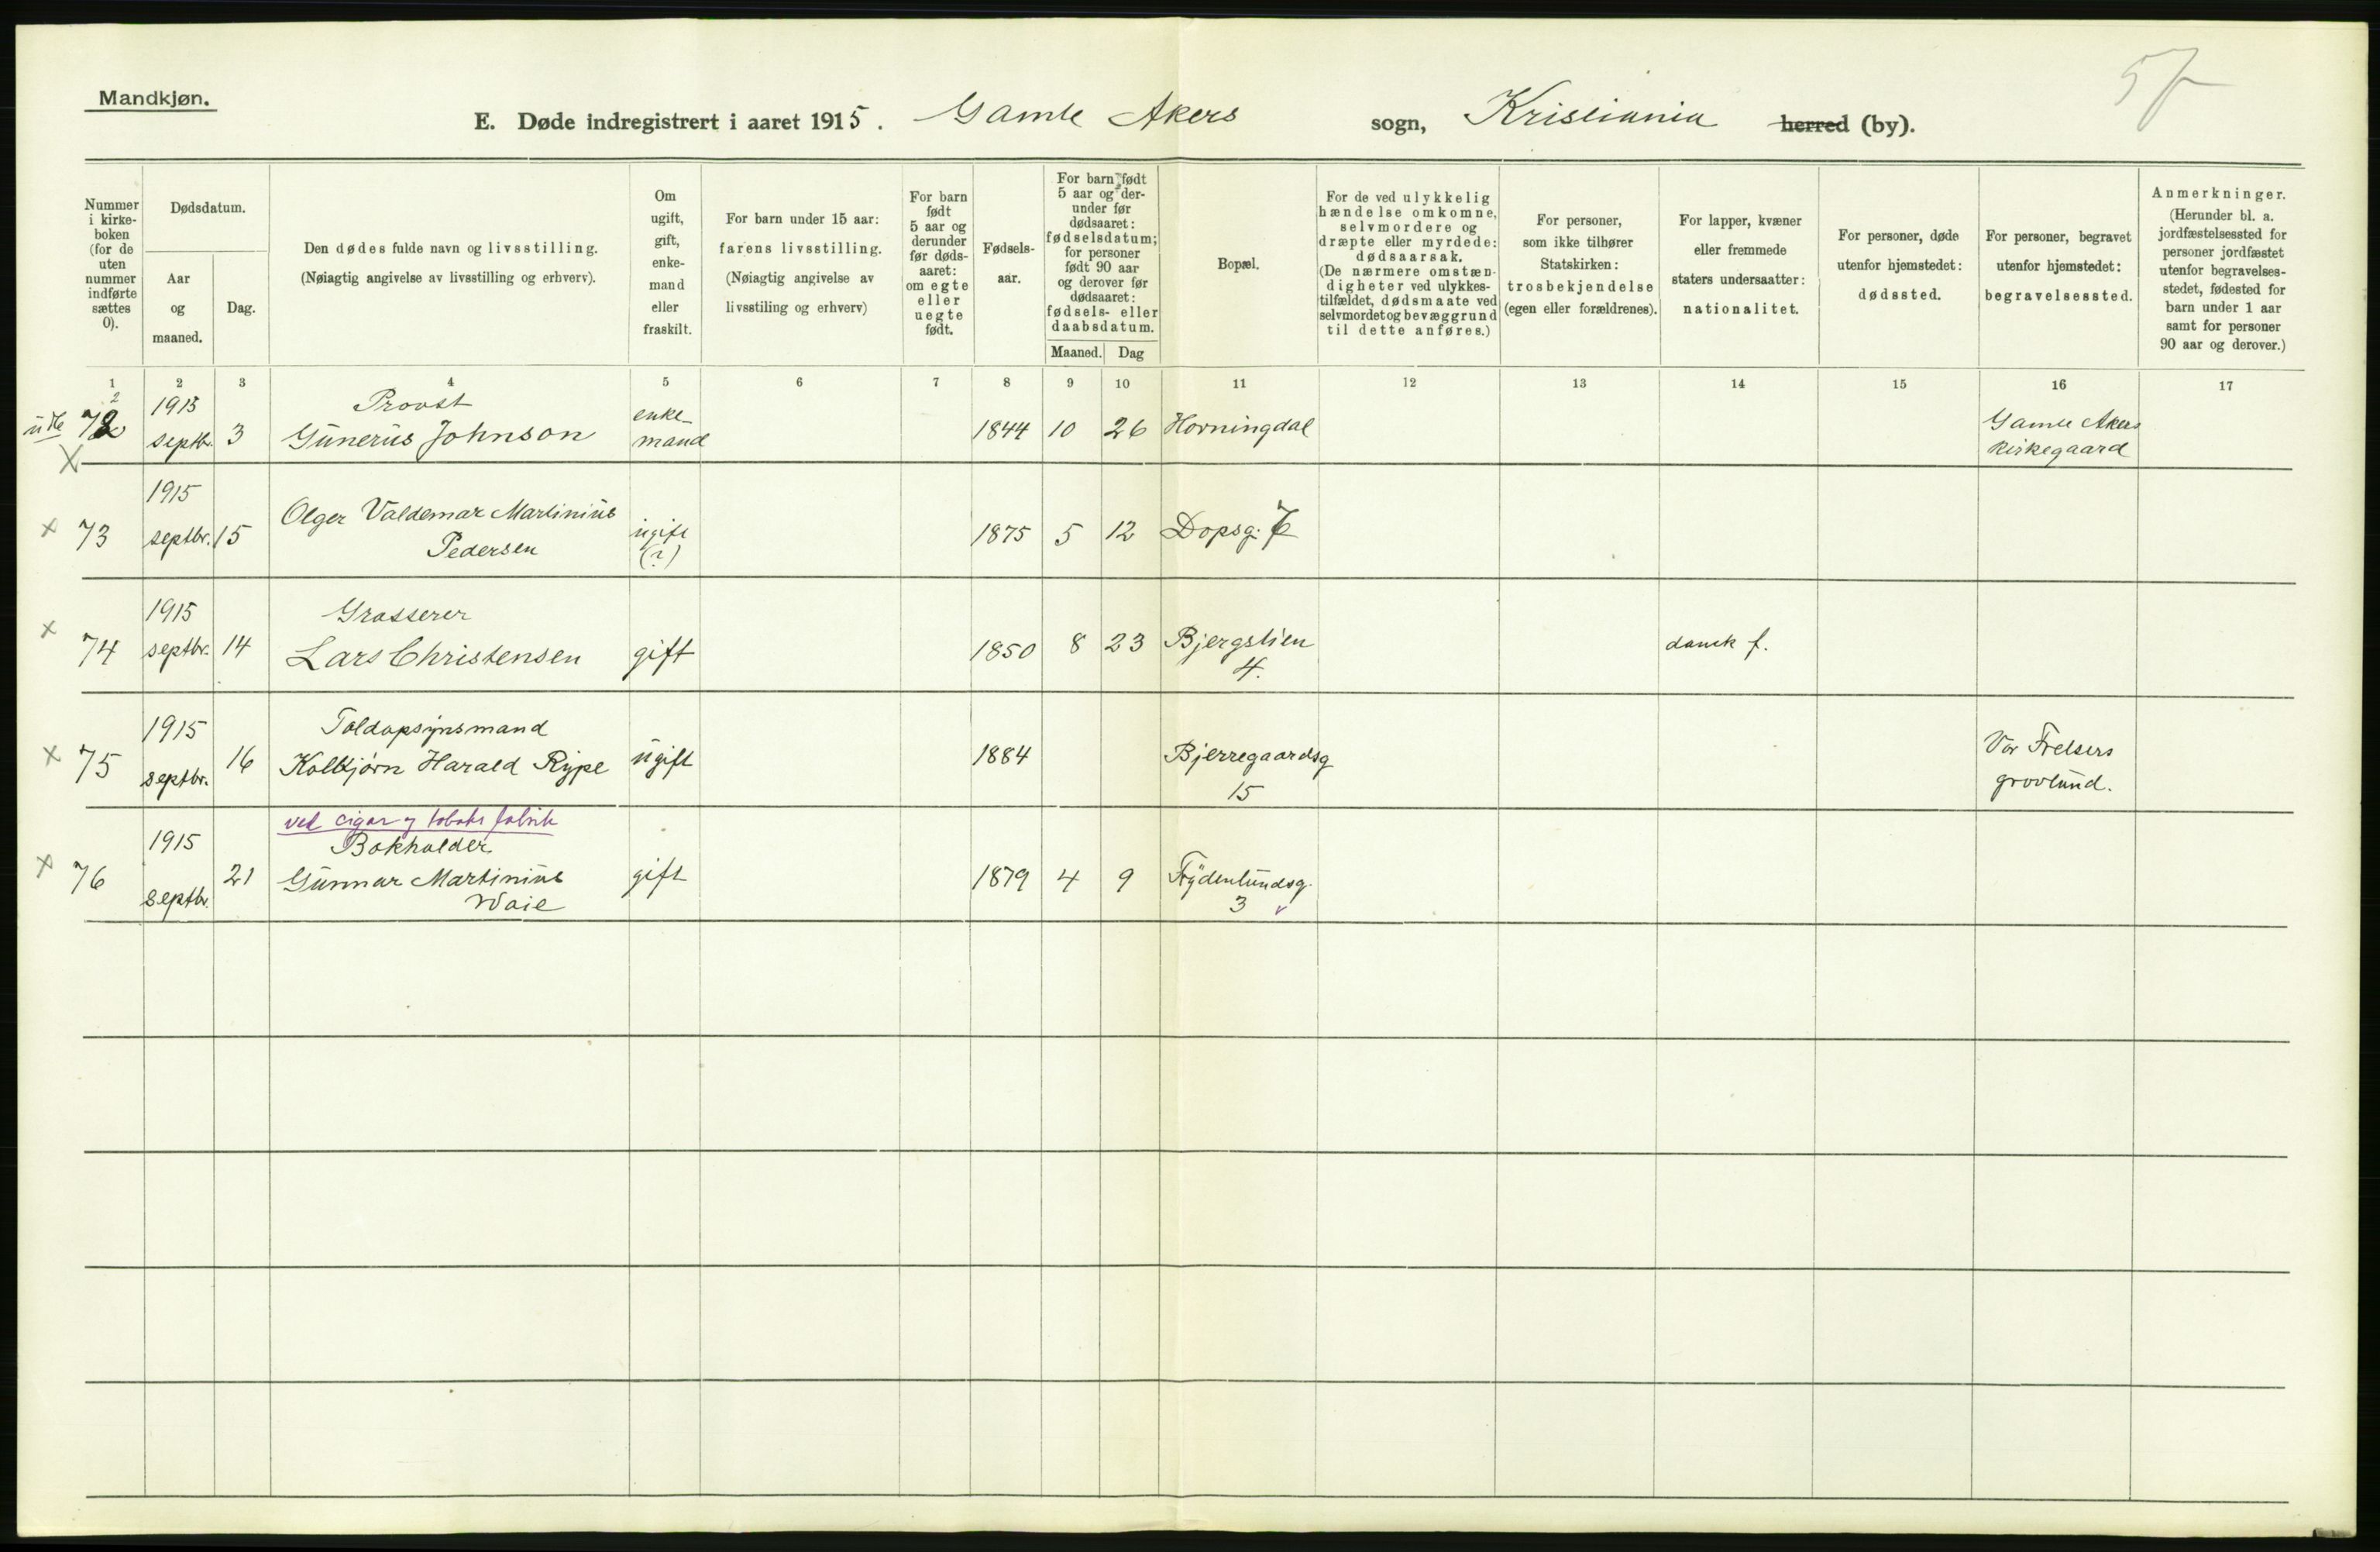 57
Mandkjøn.
E. Døde indregistrert i aaret 1915. Gamle Akers sogn, Kristiania herred (by).
Nummer i kirke-boken (for de uten nummer indførte sættes 0).
Dødsdatum.
Aar og maaned.
Dag.
Den dødes fulde navn og livsstilling.
(Nøiagtig angivelse av livsstilling og erhverv).
Om ugift, gift, enke-mand eller fraskilt.
For barn under 15 aar:
farens livsstilling.
(Nøiagtig angivelse av
livsstiling og erhverv)
For barn født 5 aar og derunder før døds-aaret: om egte eller uegte født.
Fødsels-aar.
For barn født 5 aar og der-under før dødsaaret: fødselsdatum; for personer født 90 aar og derover før dødsaaret: fødsels- eller daabsdatum.
Maaned. Dag
Bopæl.
For de ved ulykkelig hændelse omkomne, selvmordere og dræpte eller myrdede: dødsaarsak. (De nærmere omstæn-digheter ved ulykkes-tilfældet, dødsmaate ved selvmordet og bevæggrund til dette anføres.)
For personer, som ikke tilhører Statskirken: trosbekjendelse (egen eller forældrenes).
For lapper, kvæner eller fremmede staters undersaatter: nationalitet.
For personer, døde utenfor hjemstedet: dødssted.
For personer, begravet utenfor hjemstedet: begravelsessted.
Anmerkninger.
(Herunder bl. a. jordfæstelsessted for personer jordfæstet utenfor begravelses-stedet, fødested for barn under 1 aar samt for personer 90 aar og derover.)
1 2 3 4 5 6 7 8 9 10 11 12 13 14 15 16 17
2
72 1915 septbr. 3 Provst
Gunerus Johnson enke-mand 1844 10 26 Horningdal Gamle Akers kirkegaard
X
x 73 1915 septbr. 15 Olger Valdemar Martinius
Pedersen ugift (?) 1875 5 12 Dopsg. 7
x 74 1915 septbr. 14 Grosserer
Lars Christensen gift 1850 8 23 Bjergstien 4. dansk f.
x 75 1915 septbr. 16 Toldopsynsmand
Kolbjørn Harald Rype ugift 1884 Bjerregaardsg 15 Vor Frelsers gravlund.
ved cigar og tobaks fabrik
x 76 1915 septbr. 21 Bokholder
Gunnar Martinius
Waie gift 1879 4 9 Frydenlundsg. 3